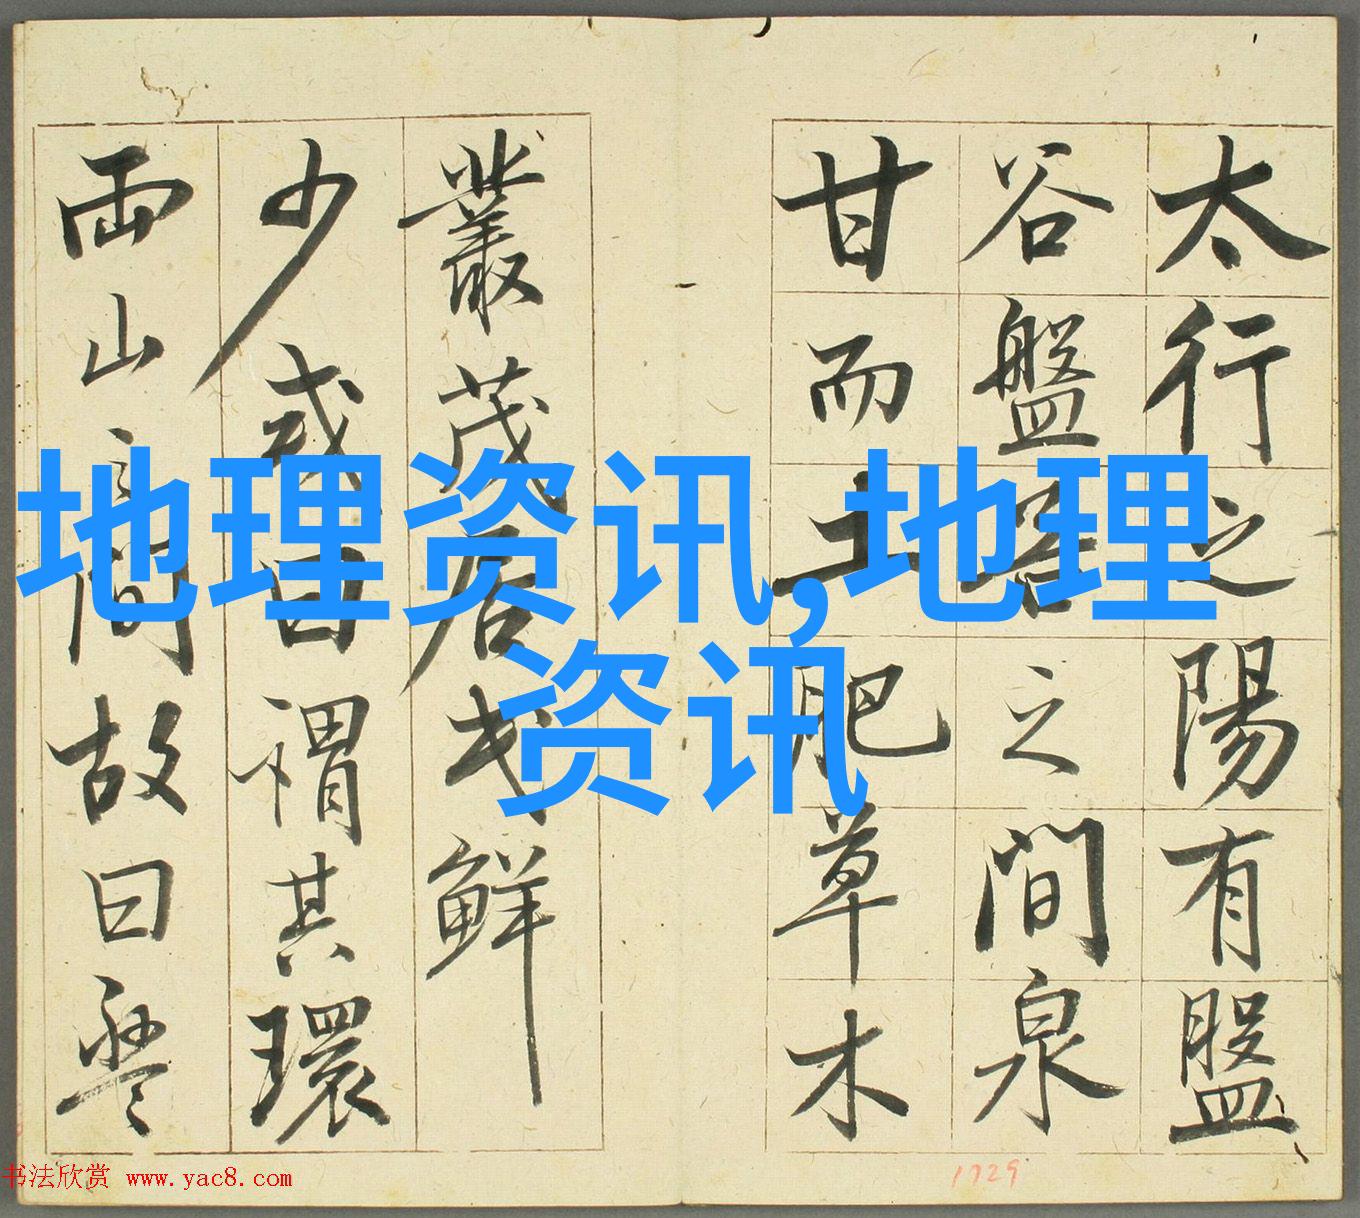 太行之陽有盤
谷盤谷之間泉
甘而土肥草木
叢茂居民鮮
少或曰謂其環
兩山之間故曰盤
地理资讯,地理
资讯
书法欣赏 www.yac8.com
1729